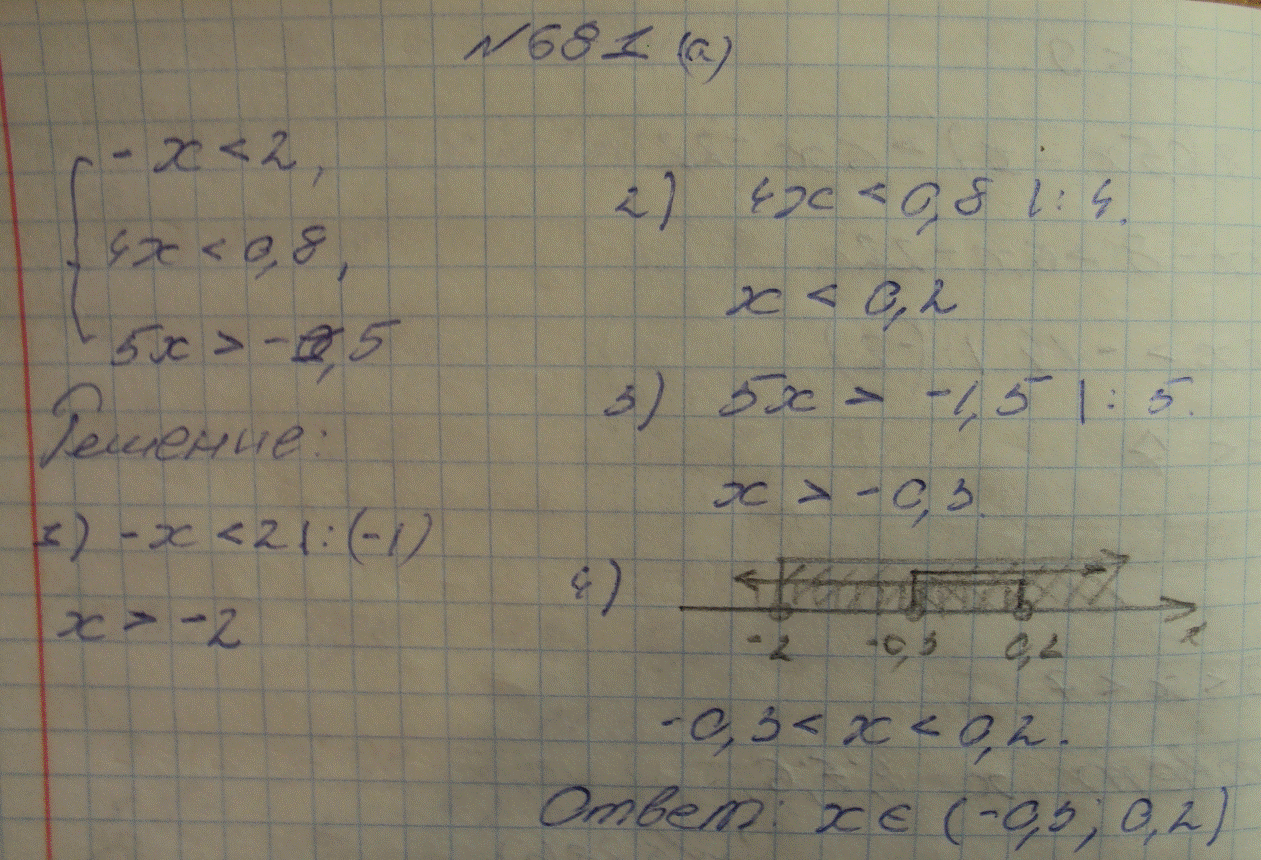 №681 (а)
-x < 2,
4x < 0,8,
5x > -1,5
Решение:
1) -x < 2 |: (-1)
x > -2
2) 4x < 0,8 |: 4.
x < 0,2
3) 5x > -1,5 |: 5.
x > -0,3.
4)
-2 -0,3 0,2 x
-0,3 < x < 0,2.
Ответ: x ∈ (-0,3; 0,2)